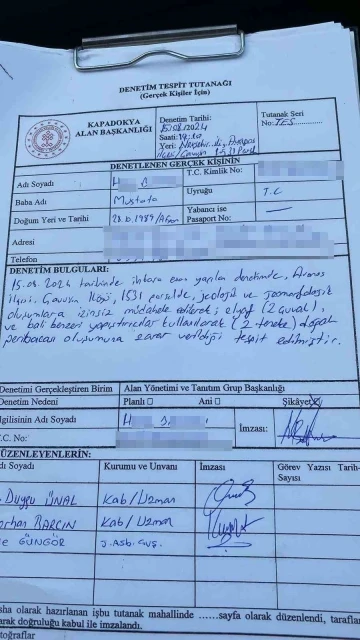 DENETİM TESPİT TUTANAĞI
(Gerçek Kişiler İçin)
KAPADOKYA
ALAN BAŞKANLIĞI
Denetim Tarihi:
15/08/2024
Saati:
Yeri: Nevşehir ili, Avanos
Tutanak Seri
No: TES..............
DENETLENEN GERÇEK KİŞİNİN
Adı Soyadı
T.C. Kimlik No:
Baba Adı Mustafa
Uyruğu T.C
Doğum Yeri ve Tarihi
Yabancı ise
Pasaport No: —
Adresi
Telefon
DENETİM BULGULARI:
15.08.2024 tarihinde ihbara esas yapılan denetimde, Avanos
ilçesi, Çavuşin Köyü, 1531 parselde, jeolojik ve jeomorfolojik
oluşumlara izinsiz müdahale edilerek; elyaf (2 çuval),
ve bali benzeri yapıştırıcılar kullanılarak (2 teneke) doğal
peribacası oluşumuna zarar verildiği tespit edilmiştir.
Denetimi Gerçekleştiren Birim Alan Yönetimi ve Tanıtım Grup Başkanlığı
Denetim Nedeni Planlı □ Ani □ Şikâyet
İlgilisinin Adı Soyadı
İmzası:
T.C. No:
DÜZENLEYENLERİN:
Adı Soyadı Kurumu ve Unvanı İmzası Görev Yazısı Tarih-
Sayısı
Duygu ÜNAL Kab/Uzman
BARÇIN Kab/Uzman
GÜNGÖR J.Asb.
olarak hazırlanan işbu tutanak mahallinde ......sayfa olarak düzenlendi, taraflar
doğruluğu kabul ile imzalandı.